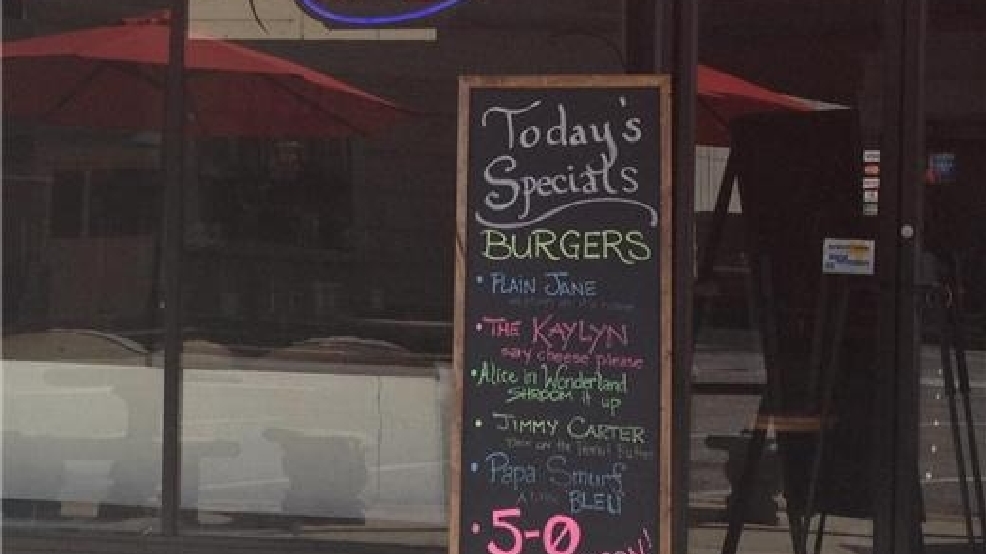 Today's
Specials
BURGERS
• PLAIN JANE
• THE KAYLYN
say cheese please
• Alice in Wonderland
SHROOM it up
• JIMMY CARTER
the Peanut Butter
• Papa Smurf
BLEU
• 5-0